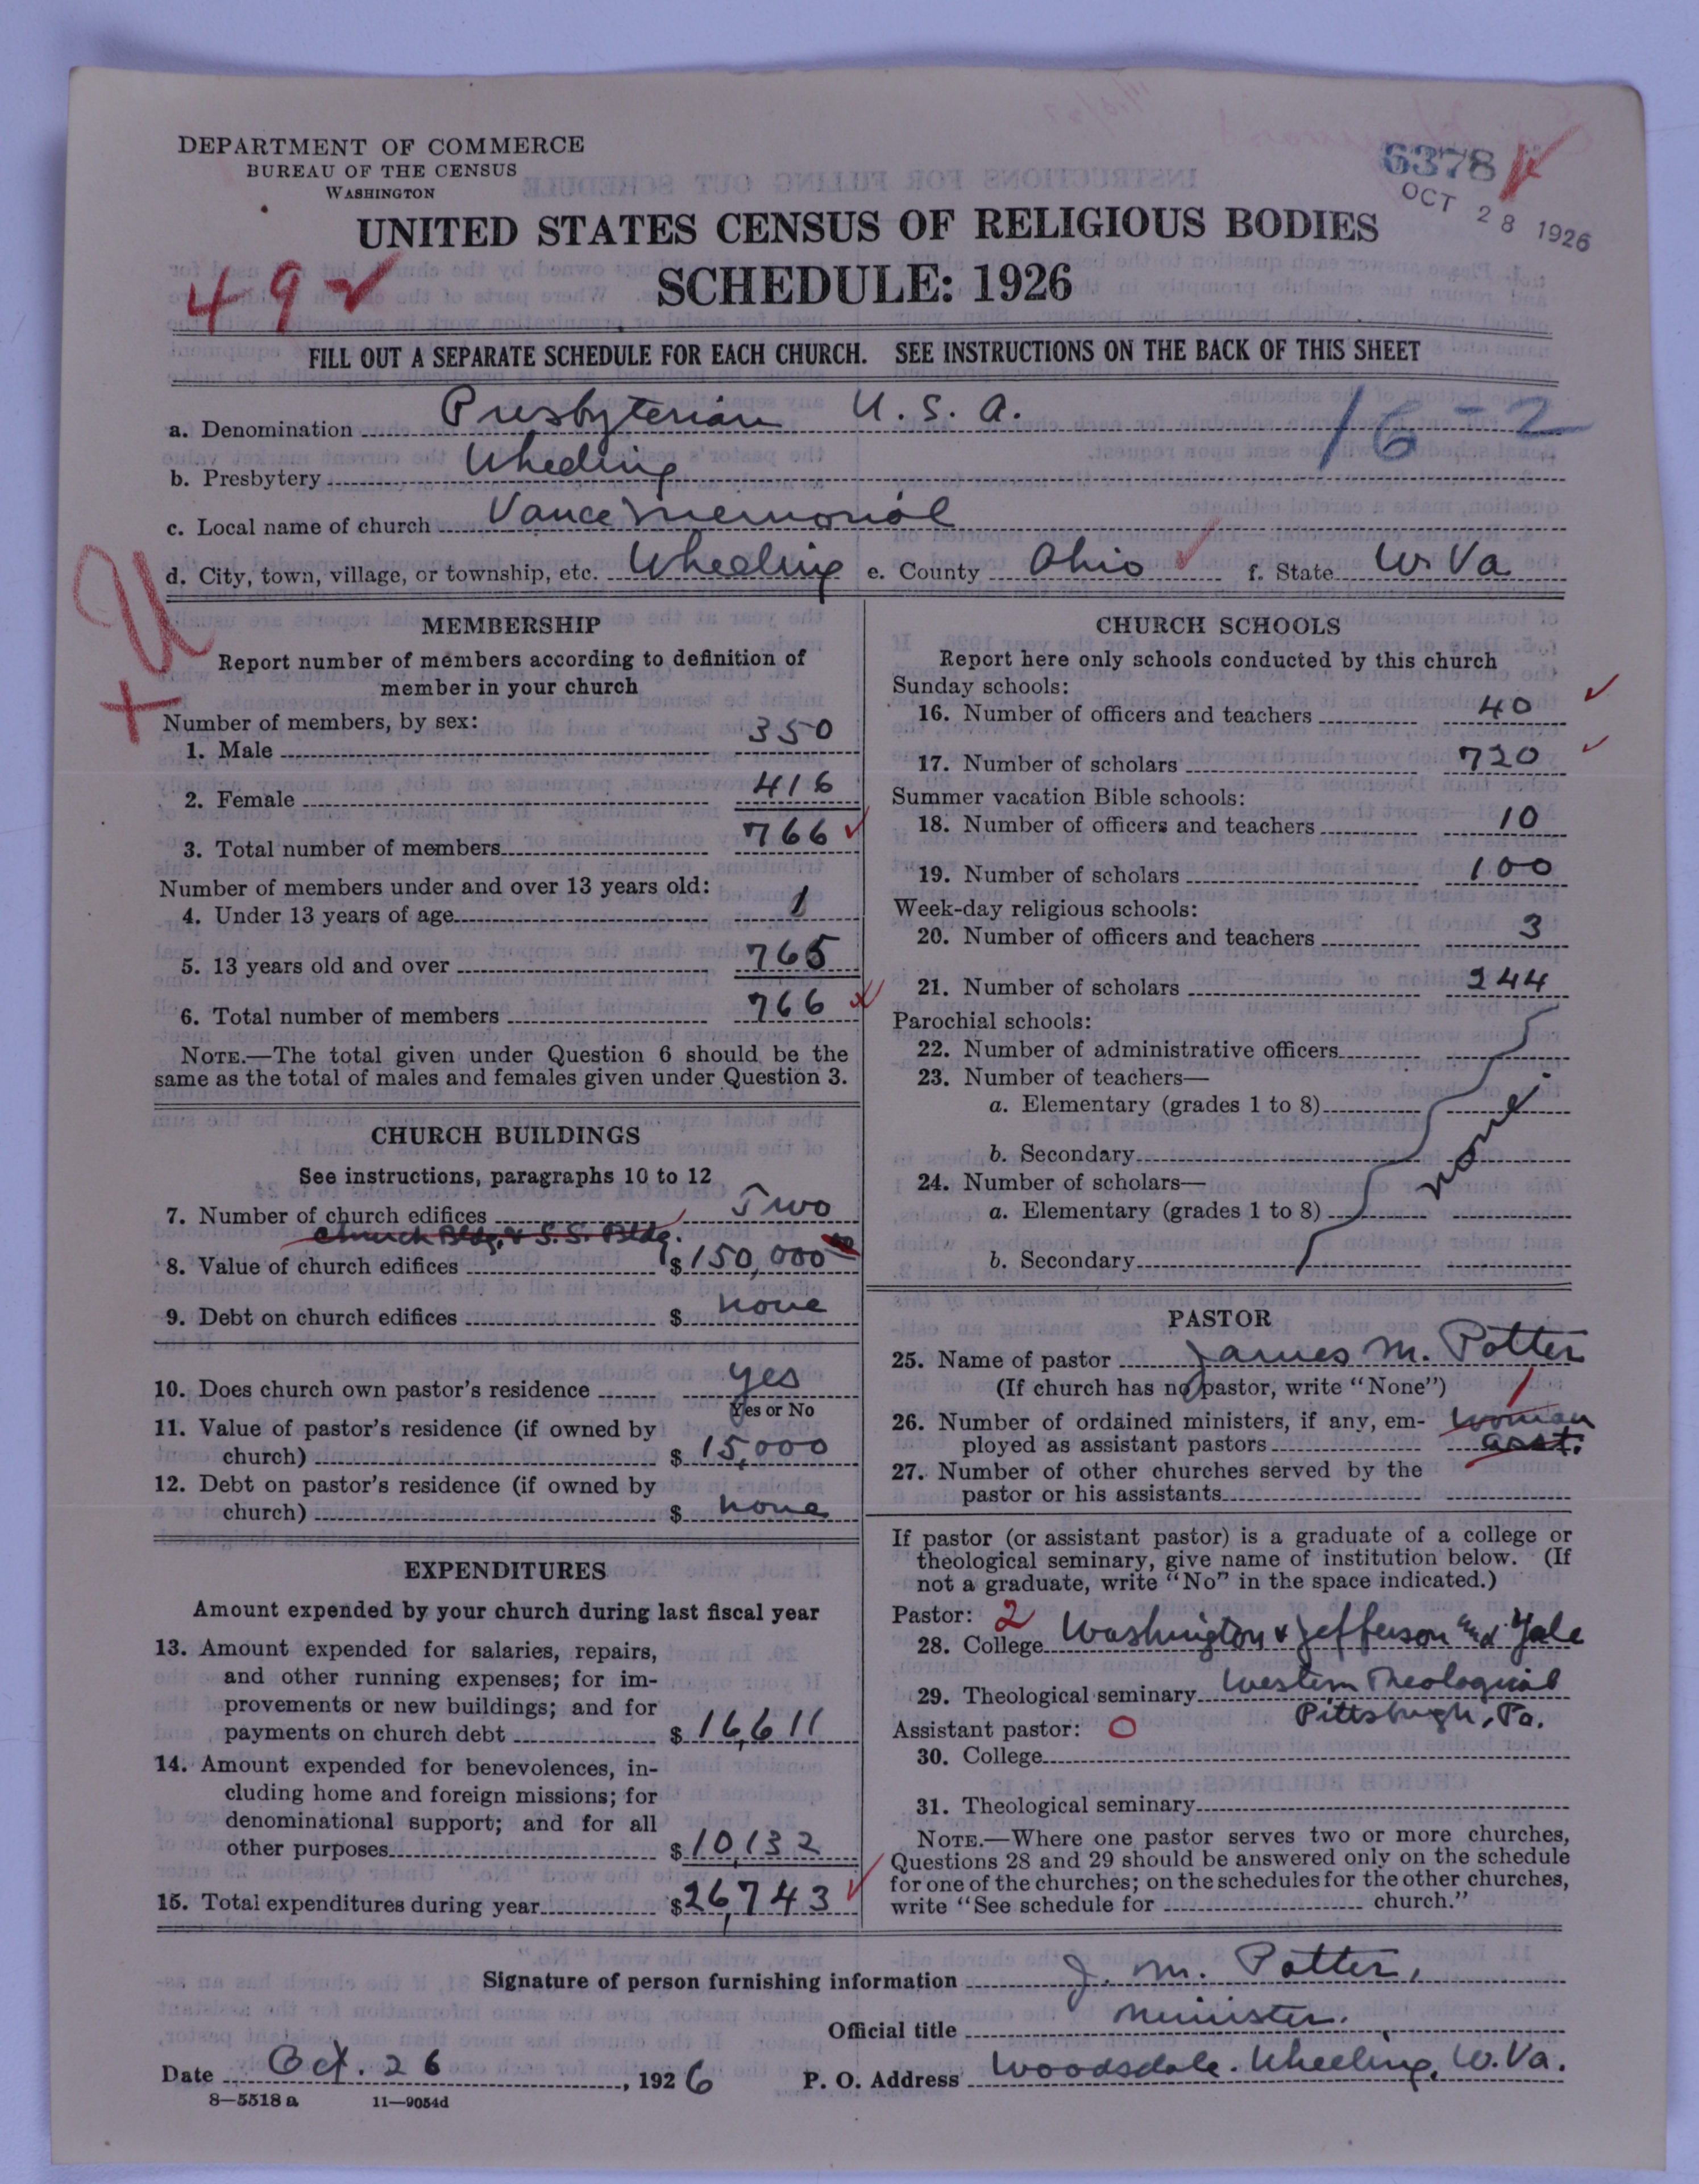 DEPARTMENT OF COMMERCE
BUREAU OF THE CENSUS
WASHINGTON
6378
OCT 28 1926
UNITED STATES CENSUS OF RELIGIOUS BODIES
SCHEDULE: 1926
49
FILL OUT A SEPARATE SCHEDULE FOR EACH CHURCH. SEE INSTRUCTIONS ON THE BACK OF THIS SHEET
a. Denomination Presbyterian U. S. A.
16-2
b. Presbytery Wheeling
c. Local name of church Vance Memorial
d. City, town, village, or township, etc. Wheeling e. County Ohio f. State W. Va
U
+
MEMBERSHIP
Report number of members according to definition of
member in your church
Number of members, by sex:
1. Male 350
2. Female 416
3. Total number of members 766
Number of members under and over 13 years old:
4. Under 13 years of age 1
5. 13 years old and over 765
6. Total number of members 766
NOTE.—The total given under Question 6 should be the
same as the total of males and females given under Question 3.
CHURCH BUILDINGS
See instructions, paragraphs 10 to 12
7. Number of church edifices Two
Church Bldg. & S. S. Bldg.
8. Value of church edifices $150,000
9. Debt on church edifices $ none
10. Does church own pastor's residence yes
Yes or No
11. Value of pastor's residence (if owned by
church) $15,000
12. Debt on pastor's residence (if owned by
church) $ none
EXPENDITURES
Amount expended by your church during last fiscal year
13. Amount expended for salaries, repairs,
and other running expenses; for im-
provements or new buildings; and for
payments on church debt $16,611
14. Amount expended for benevolences, in-
cluding home and foreign missions; for
denominational support; and for all
other purposes $10,132
15. Total expenditures during year $26,743
CHURCH SCHOOLS
Report here only schools conducted by this church
Sunday schools:
16. Number of officers and teachers 40
17. Number of scholars 720
Summer vacation Bible schools:
18. Number of officers and teachers 10
19. Number of scholars 100
Week-day religious schools:
20. Number of officers and teachers 3
21. Number of scholars 244
Parochial schools:
22. Number of administrative officers
23. Number of teachers—
a. Elementary (grades 1 to 8)
none.
b. Secondary
24. Number of scholars—
a. Elementary (grades 1 to 8)
b. Secondary
PASTOR
25. Name of pastor James M. Potter
(If church has no pastor, write "None") 1
26. Number of ordained ministers, if any, em- woman
ployed as assistant pastors asst.
27. Number of other churches served by the
pastor or his assistants
If pastor (or assistant pastor) is a graduate of a college or
theological seminary, give name of institution below. (If
not a graduate, write "No" in the space indicated.)
Pastor: 2
28. College Washington & Jefferson and Yale
29. Theological seminary Western Theological
Pittsburgh, Pa.
Assistant pastor: 0
30. College
31. Theological seminary
NOTE.—Where one pastor serves two or more churches,
Questions 28 and 29 should be answered only on the schedule
for one of the churches; on the schedules for the other churches,
write "See schedule for church."
Signature of person furnishing information J. M. Potter,
Official title Minister.
Date Oct. 26, 1926 P. O. Address Woodsdale. Wheeling, W. Va.
8—5518 a 11—9054d